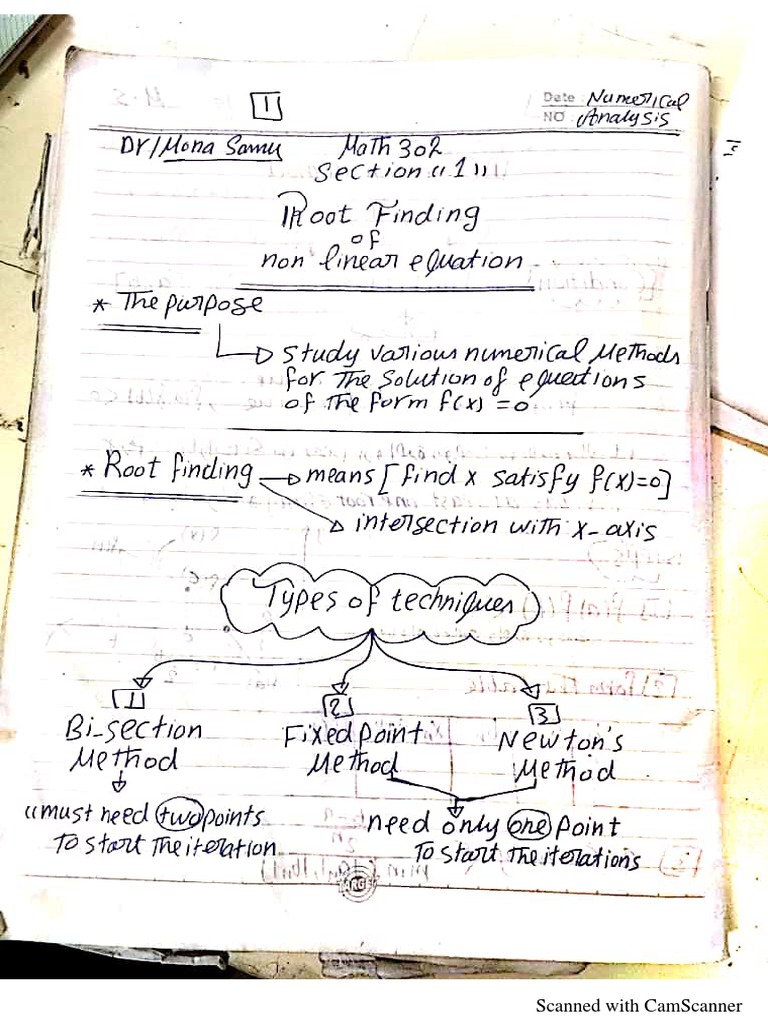 1
Date Numerical
NO. Analysis
Dr/Mona Samy Math 302
Section "1"
Root Finding
of
non linear equation
* The purpose
Study various numerical Methods
for The Solution of equations
of the form f(x) = 0
* Root finding → means [find x satisfy f(x)=0]
intersection with x-axis
Types of techniques
1 2 3
Bi-section Fixed point Newton's
Method Method Method
"must need two points need only one point
To start the iteration To start the iterations
TARGET
Scanned with CamScanner